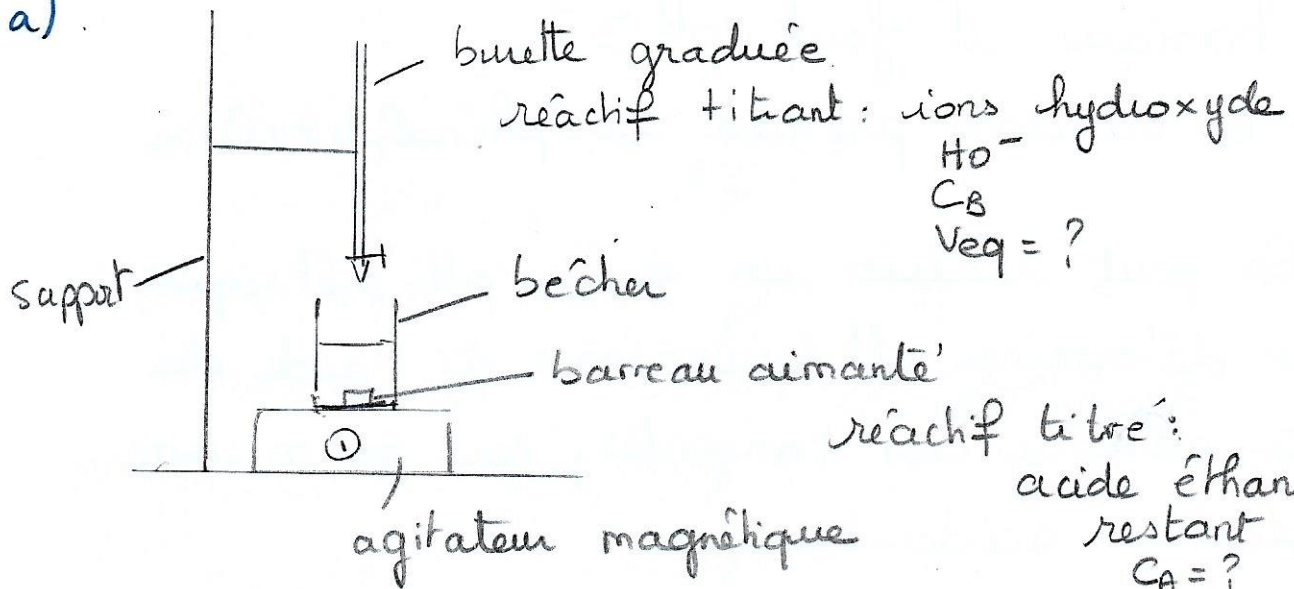 a).
burette graduée
réactif titrant : ions hydroxyde
HO⁻
CB
Veq = ?
support
bêcher
barreau aimanté
réactif titré :
acide éthan
restant
CA = ?
agitateur magnétique